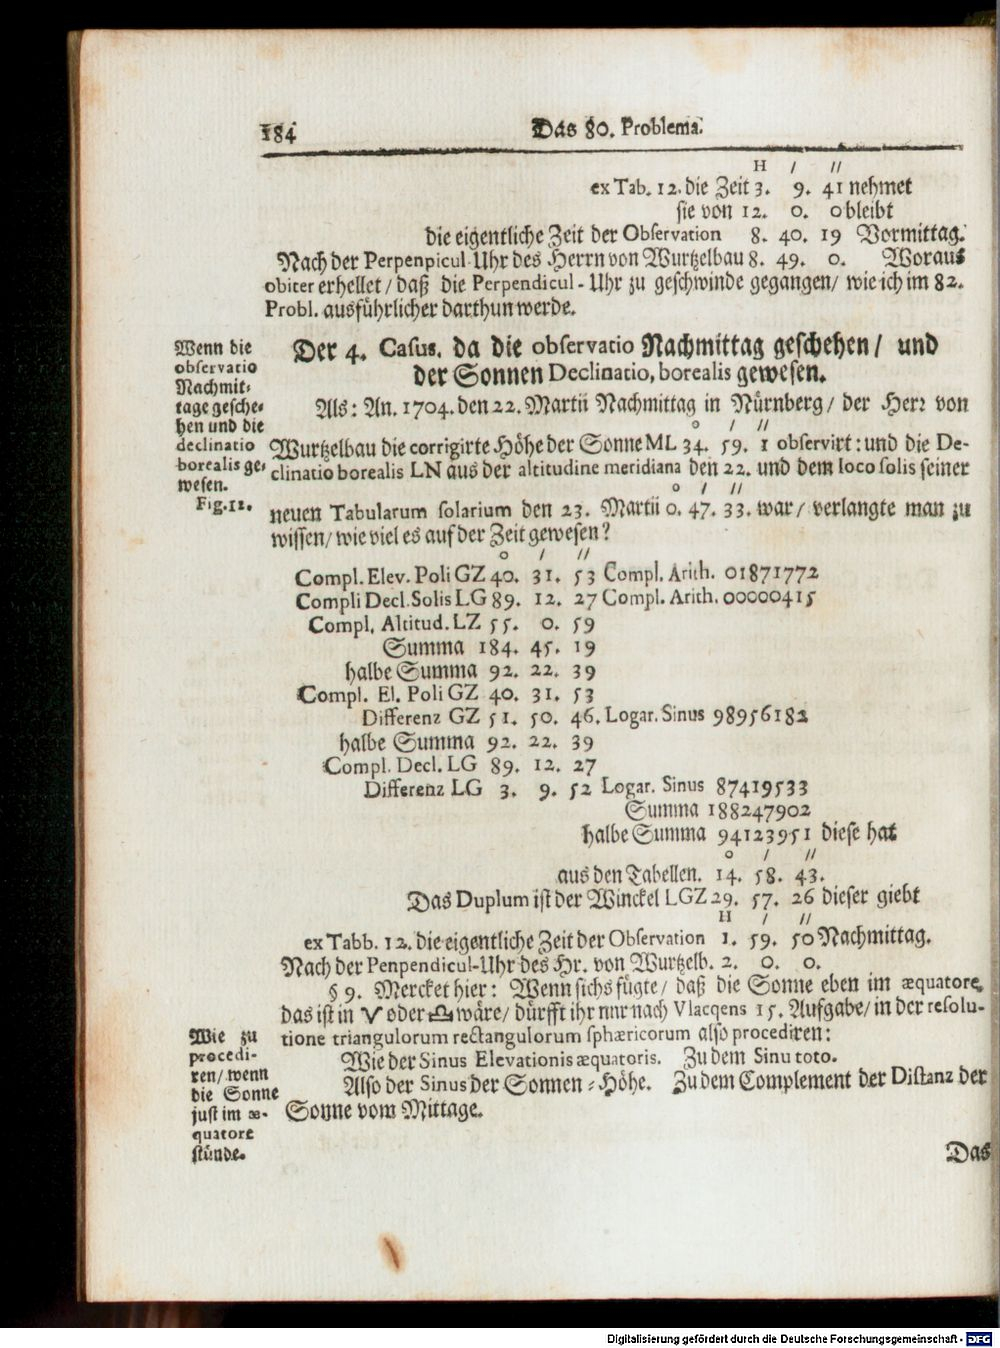 184
Das 80. Problema.
H / //
ex Tab. 12. die Zeit 3. 9. 41 nehmet
sie von 12. 0. 0 bleibt
die eigentliche Zeit der Observation 8. 40. 19 Vormittag.
Nach der Perpenpicul-Uhr des Herrn von Wurtzelbau 8. 49. 0. Woraus
obiter erhellet / daß die Perpendicul-Uhr zu geschwinde gegangen / wie ich im 82.
Probl. ausführlicher darthun werde.
Wenn die
observatio
Nachmit-
tage gesche-
hen und die
declinatio
borealis ge-
wesen.
Fig. 11.
Der 4. Casus. da die observatio Nachmittag geschehen / und
der Sonnen Declinatio, borealis gewesen.
Als: An. 1704. den 22. Martii Nachmittag in Nürnberg / der Herr von
o / //
Wurtzelbau die corrigirte Höhe der Sonne ML 34. 59. 1 observirt: und die De-
clinatio borealis LN aus der altitudine meridiana den 22. und dem loco solis seiner
o / //
neuen Tabularum solarium den 23. Martii 0. 47. 33. war / verlangte man zu
wissen / wie viel es auf der Zeit gewesen?
o / //
Compl. Elev. Poli GZ 40. 31. 53 Compl. Arith. 01871772
Compli Decl. Solis LG 89. 12. 27 Compl. Arith. 00000415
Compl. Altitud. LZ 55. 0. 59
Summa 184. 45. 19
halbe Summa 92. 22. 39
Compl. El. Poli GZ 40. 31. 53
Differenz GZ 51. 50. 46. Logar. Sinus 98956182
halbe Summa 92. 22. 39
Compl. Decl. LG 89. 12. 27
Differenz LG 3. 9. 52 Logar. Sinus 87419533
Summa 188247902
halbe Summa 94123951 diese hat
o / //
aus den Tabellen. 14. 58. 43.
Das Duplum ist der Winckel LGZ 29. 57. 26 dieser giebt
H / //
ex Tabb. 12. die eigentliche Zeit der Observation 1. 59. 50 Nachmittag.
Nach der Penpendicul-Uhr des Hr. von Wurtzelb. 2. 0. 0.
§ 9. Mercket hier: Wenn sichs fügte / daß die Sonne eben im æquatore,
das ist in ♈ oder ♎ wäre / dürfft ihr nur nach Vlacqens 15. Aufgabe / in der resolu-
tione triangulorum rectangulorum sphæricorum also procediren:
Wie zu
procedi-
ren / wenn
die Sonne
just im æ-
quatore
stünde.
Wie der Sinus Elevationis æquatoris. Zu dem Sinu toto.
Also der Sinus der Sonnen-Höhe. Zu dem Complement der Distanz der
Sonne vom Mittage.
Das
Digitalisierung gefördert durch die Deutsche Forschungsgemeinschaft - DFG